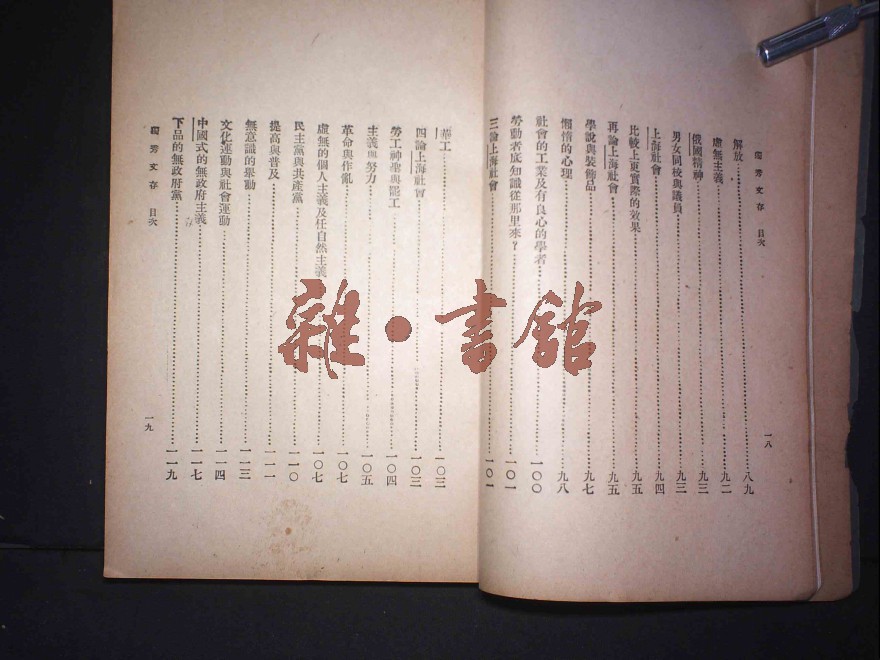 獨秀文存 目次
解放……八九
虛無主義……九二
俄國精神……九三
男女同校與議員……九三
上海社會……九四
比較上更實際的效果……九五
再論上海社會……九五
學說與裝飾品……九七
懶惰的心理……九八
社會的工業及有良心的學者……一〇〇
勞動者底知識從那里來？……一〇一
三論上海社會……一〇一
一八
華工……一〇三
四論上海社會……一〇三
勞工神聖與罷工……一〇四
主義與努力……一〇五
革命與作亂……一〇七
虛無的個人主義及任自然主義……一〇七
民主黨與共產黨……一一〇
提高與普及……一一一
無意識的舉動……一一三
文化運動與社會運動……一一四
中國式的無政府主義……一一七
下品的無政府黨……一一九
獨秀文存 目次
一九
雜·書館